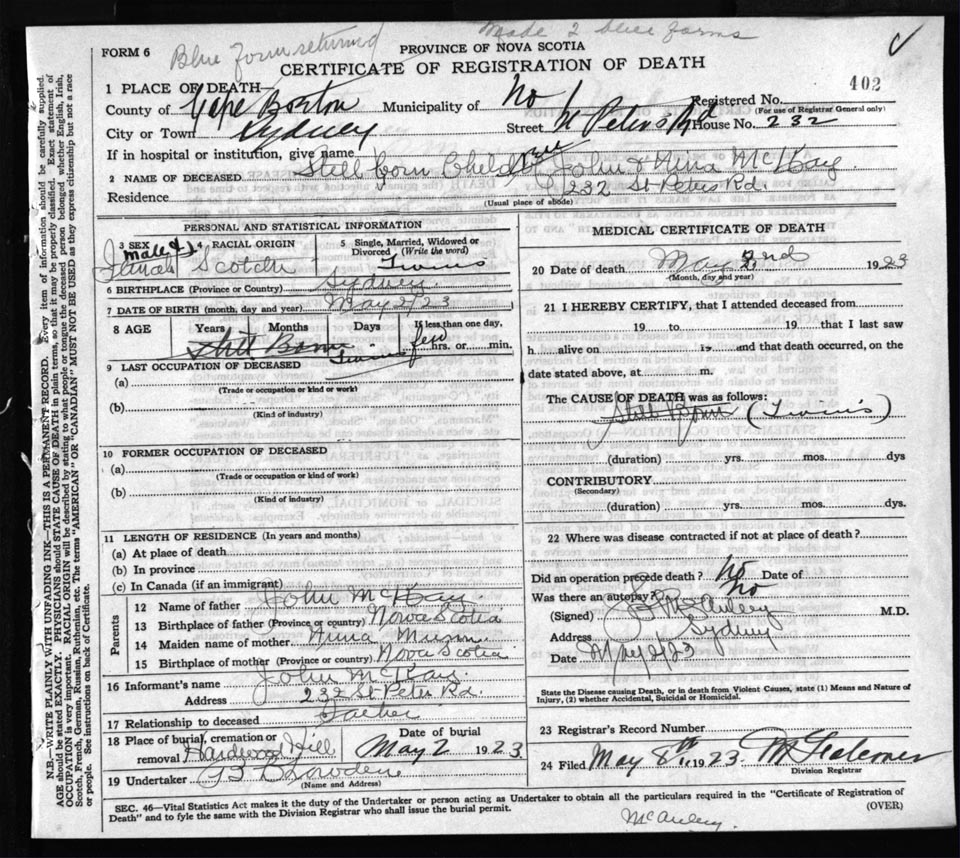 Made 2 blue forms
Blue Form returned
FORM 6
PROVINCE OF NOVA SCOTIA
CERTIFICATE OF REGISTRATION OF DEATH
402
1 PLACE OF DEATH—
County of Cape Breton Municipality of No Registered No.
(For use of Registrar General only)
City or Town Sydney Street St Peters Rd House No. 232
If in hospital or institution, give name
2 NAME OF DECEASED Still born Child John & Nina McKay
Residence 232 St Peters Rd.
(Usual place of abode)
PERSONAL AND STATISTICAL INFORMATION
3 SEX male 4 RACIAL ORIGIN Scotch
5 Single, Married, Widowed or Divorced (Write the word) Twins
6 BIRTHPLACE (Province or Country) Sydney
7 DATE OF BIRTH (month, day and year) May 2/23
8 AGE Years Months Days If less than one day,
Still Born Twins few hrs. or min.
9 LAST OCCUPATION OF DECEASED
(a)
(Trade or occupation or kind or work)
(b)
(Kind of industry)
10 FORMER OCCUPATION OF DECEASED
(a)
(Trade or occupation or kind of work)
(b)
(Kind of industry)
11 LENGTH OF RESIDENCE (In years and months)
(a) At place of death
(b) In province
(c) In Canada (if an immigrant)
Parents
12 Name of father John McKay
13 Birthplace of father (Province or country) Nova Scotia
14 Maiden name of mother Anna
15 Birthplace of mother (Province or country) Nova Scotia
16 Informant's name John McKay
Address 232 St Peter Rd.
17 Relationship to deceased Father
18 Place of burial, cremation or removal Hardwood Hill Date of burial May 2 1923
19 Undertaker
(Name and Address)
MEDICAL CERTIFICATE OF DEATH
20 Date of death May 2nd 1923
(Month, day and year)
21 I HEREBY CERTIFY, that I attended deceased from
19 to 19 that I last saw
h alive on 19 and that death occurred, on
date stated above, at m.
The CAUSE OF DEATH was as follows:
Still Born (Twins)
(duration) yrs. mos. dys
CONTRIBUTORY
(Secondary)
(duration) yrs. mos. dys.
22 Where was disease contracted if not at place of death?
Did an operation precede death? No Date of
Was there an autopsy? No
(Signed) McAuley M.D.
Address Sydney
Date May 2/23
State the Disease causing Death, or in death from Violent Causes, state (1) Means and Nature of
Injury, (2) whether Accidental, Suicidal or Homicidal.
23 Registrar's Record Number
24 Filed May 8th 1923
Division Registrar
SEC. 46—Vital Statistics Act makes it the duty of the Undertaker or person acting as Undertaker to obtain all the particulars required in the "Certificate of Registration of
Death" and to fyle the same with the Division Registrar who shall issue the burial permit.
(OVER)
McAuley.
N.B.—WRITE PLAINLY WITH UNFADING INK—THIS IS A PERMANENT RECORD. Every item of information should be carefully supplied.
AGE should be stated EXACTLY. PHYSICIANS should STATE CAUSE OF DEATH in plain terms, so that it may be properly classified. Exact statement of
OCCUPATION is very important. RACIAL ORIGIN will be described by stating to what people or tongue the deceased person belonged whether English, Irish,
Scotch, French, German, Russian, Ruthenian, etc. The terms "AMERICAN" OR "CANADIAN" MUST NOT BE USED as they express citizenship but not a race
or people. See instructions on back of Certificate.